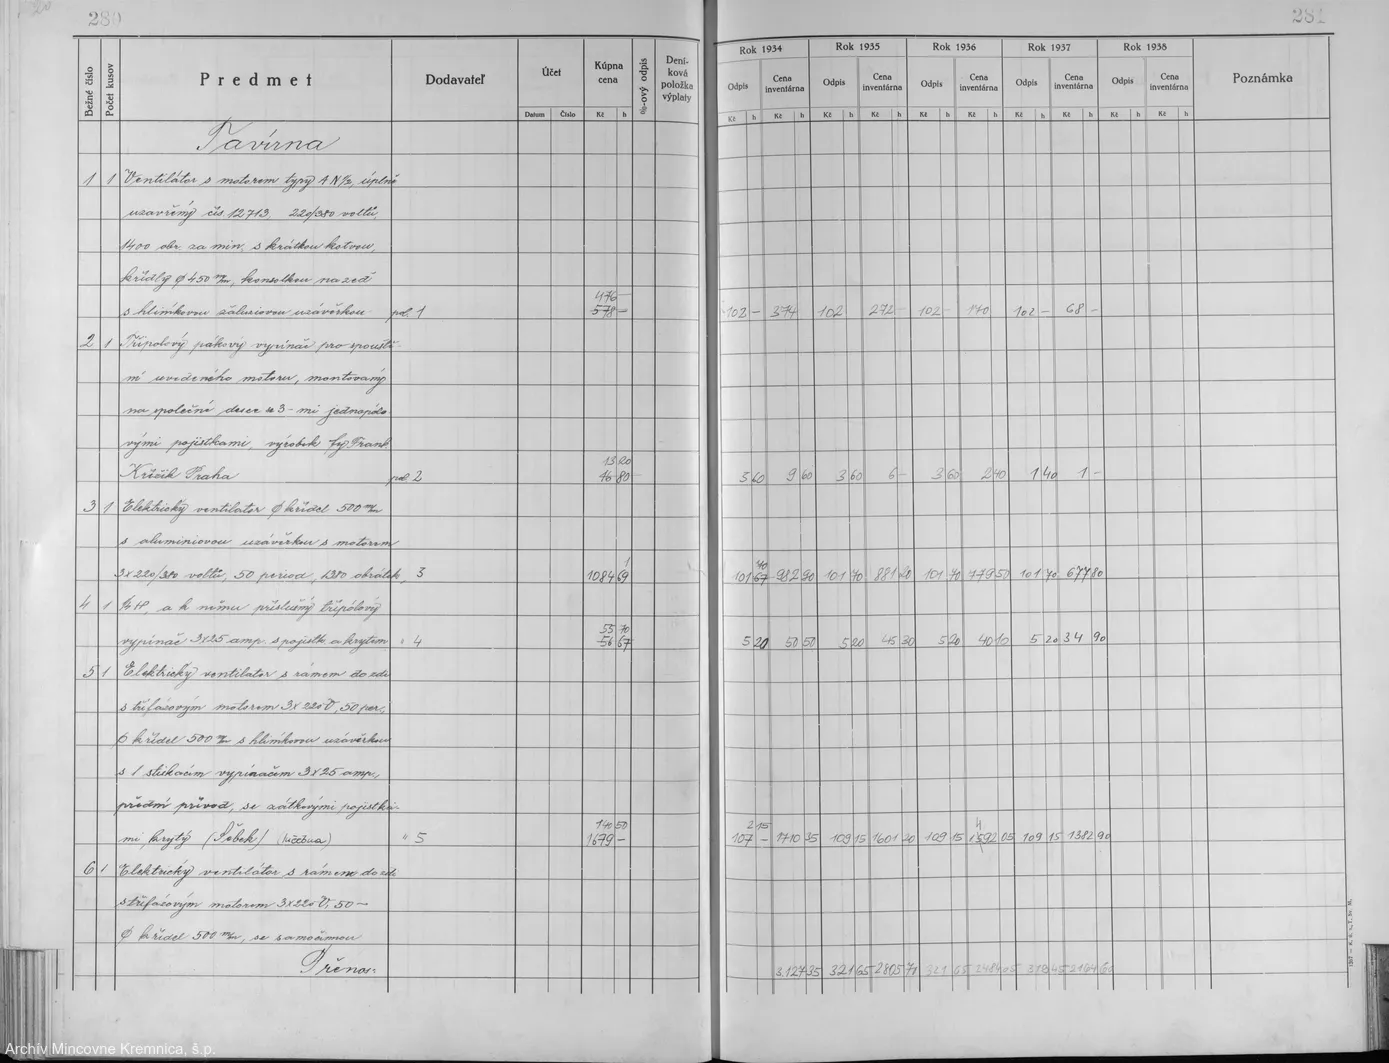 280
Bežné číslo Počet kusov Predmet Dodavateľ Účet Kúpna cena %-ový odpis Deníková položka výplaty
Datum Číslo Kč h
Tavírna
1 1 Ventilátor s motorem typy AN½, úplně
uzavřený čís 12713, 220/380 voltů
1400 obr. za min. s krátkou kotvou,
křídly ø 450 m/m, konsolkou na zeď
476 –
s hliníkovou žaluziovou uzávěrkou pol. 1 578 –
2 1 Třípolový pákový vypínač pro spouště-
ní uvedeného motoru, montovaný
na společné desce se 3-mi jednopólo
vými pojistkami, výrobek fy. Frant
13 20
Křižík Praha pol. 2 16 80
3 1 Elektrický ventilator ø křídel 500 m/m
s aluminiovou uzávěrkou s motorem
3x220/380 voltů, 50 period, 1380 obrátek 3 1084 69
4 1 HP, a k němu příslušný třípólový
55 70
vypínač 3x25 amp. s pojistk a krytem " 4 56 67
5 1 Elektrický ventilator s rámem do zdi
s třífázovým motorem 3x220 V, 50 per.,
ø křídel 500 m/m s hliníkovou uzávěrkou
s 1 stiskacím vypínačem 3x25 amp.,
přední přívod, se zátkovými pojistka-
mi krytý (Šebek) " 5 1679 –
6 1 Elektrický ventilátor s rámem do zdi
s třífázovým motorem 3x220 V, 50 –
ø křídel 500 m/m, se samočinnou
Přenos:
281
Rok 1934 Rok 1935 Rok 1936 Rok 1937 Rok 1938 Poznámka
Odpis Cena inventárna Odpis Cena inventárna Odpis Cena inventárna Odpis Cena inventárna Odpis Cena inventárna
Kč h Kč h Kč h Kč h Kč h Kč h Kč h Kč h Kč h Kč h
102 – 374 102 272 – 102 – 170 102 – 68 –
3 60 9 60 3 60 6 – 3 60 2 40 1 40 1 –
101 67 982 90 101 70 881 20 101 70 779 50 101 70 677 80
5 20 50 50 5 20 45 30 5 20 40 10 5 20 34 90
2 15
107 – 1710 35 109 15 1601 20 109 15 1592 05 109 15 1382 90
3.127 35 321 65 2805 71 321 65 2484 05 318 45 2164 60
Archív Mincovne Kremnica, š.p.